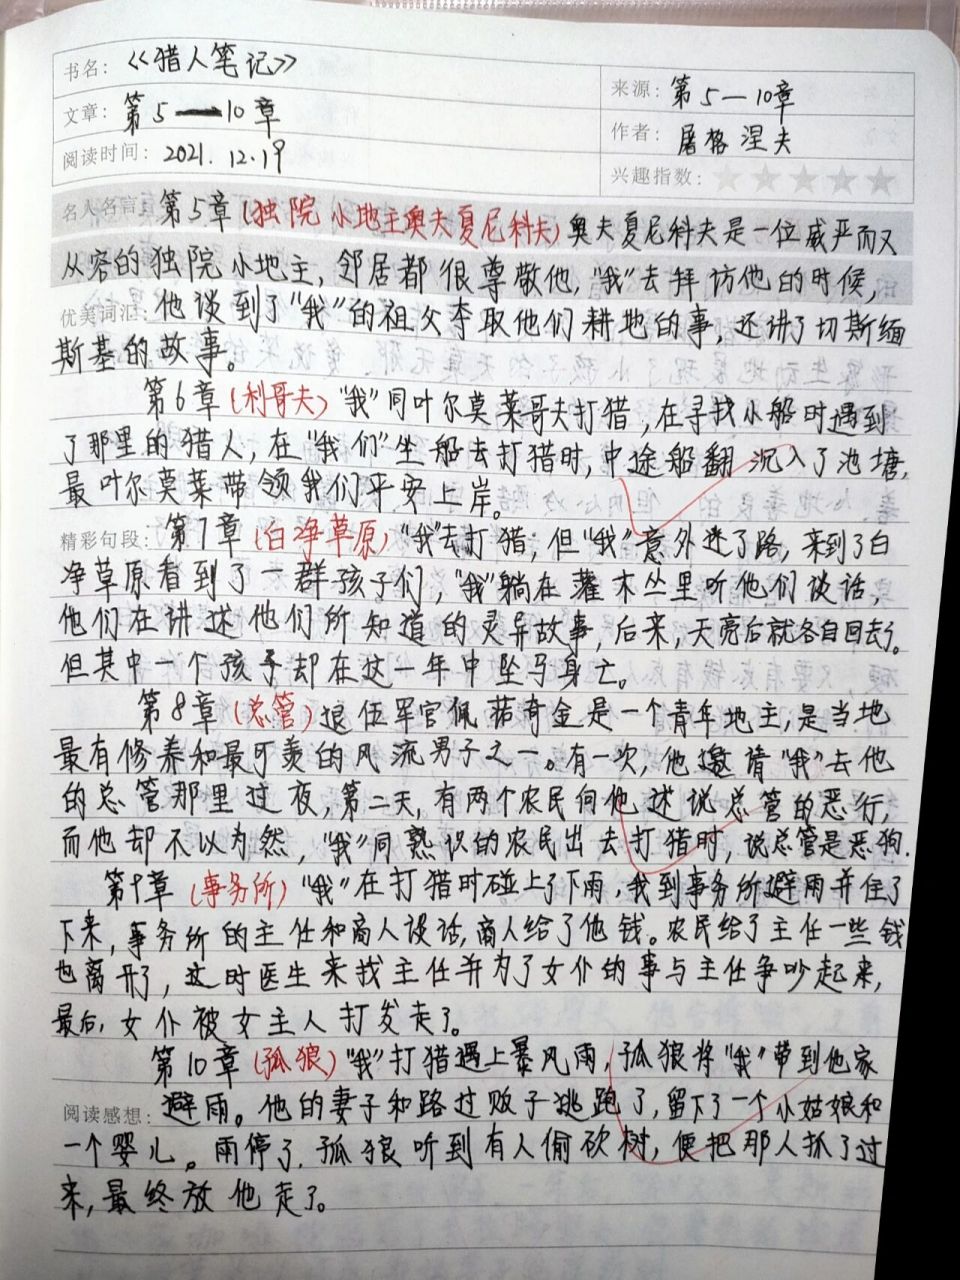 书名： 《猎人笔记》
来源： 第5—10章
文章： 第5—10章
作者： 屠格涅夫
阅读时间： 2021.12.19
兴趣指数：
名人名言： 第5章（独院小地主奥夫夏尼科夫）奥夫夏尼科夫是一位威严而又
从容的独院小地主，邻居都很尊敬他，“我”去拜访他的时候，
优美词汇： 他谈到了“我”的祖父夺取他们耕地的事，还讲了切斯缅
斯基的故事。
第6章（利哥夫）“我”同叶尔莫莱哥夫打猎，在寻找小船时遇到
了那里的猎人，在“我们”坐船去打猎时，中途船翻沉入了池塘，
最叶尔莫莱带领我们平安上岸。
精彩句段： 第7章（白净草原）“我”去打猎；但“我”意外迷了路，来到了白
净草原看到了一群孩子们，“我”躺在灌木丛里听他们谈话，
他们在讲述他们所知道的灵异故事，后来，天亮后就各自回去了。
但其中一个孩子却在这一年中坠马身亡。
第8章（总管）退伍军官佩诺奇金是一个青年地主，是当地
最有修养和最可羡的风流男子之一。有一次，他邀请“我”去他
的总管那里过夜，第二天，有两个农民向他述说总管的恶行，
而他却不以为然，“我”同熟识的农民出去打猎时，说总管是恶狗.
第9章（事务所）“我”在打猎时碰上了下雨，我到事务所避雨并住了
下来，事务所的主任和商人谈话，商人给了他钱。农民给了主任一些钱
也离开了，这时医生来找主任并为了女仆的事与主任争吵起来，
最后，女仆被女主人打发走了。
第10章（孤狼）“我”打猎遇上暴风雨，孤狼将“我”带到他家
阅读感想： 避雨。他的妻子和路过贩子逃跑了，留下了一个小姑娘和
一个婴儿。雨停了，孤狼听到有人偷砍树，便把那人抓了过
来，最终放他走了。